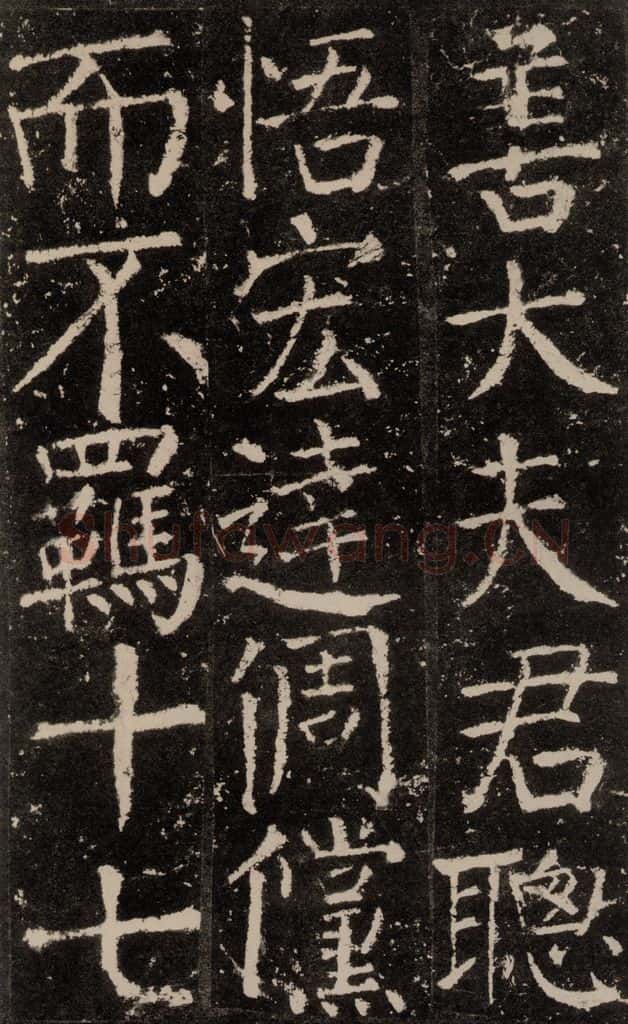 善大夫君聰
悟宏達倜儻
而不羈十七
shufawang.CN